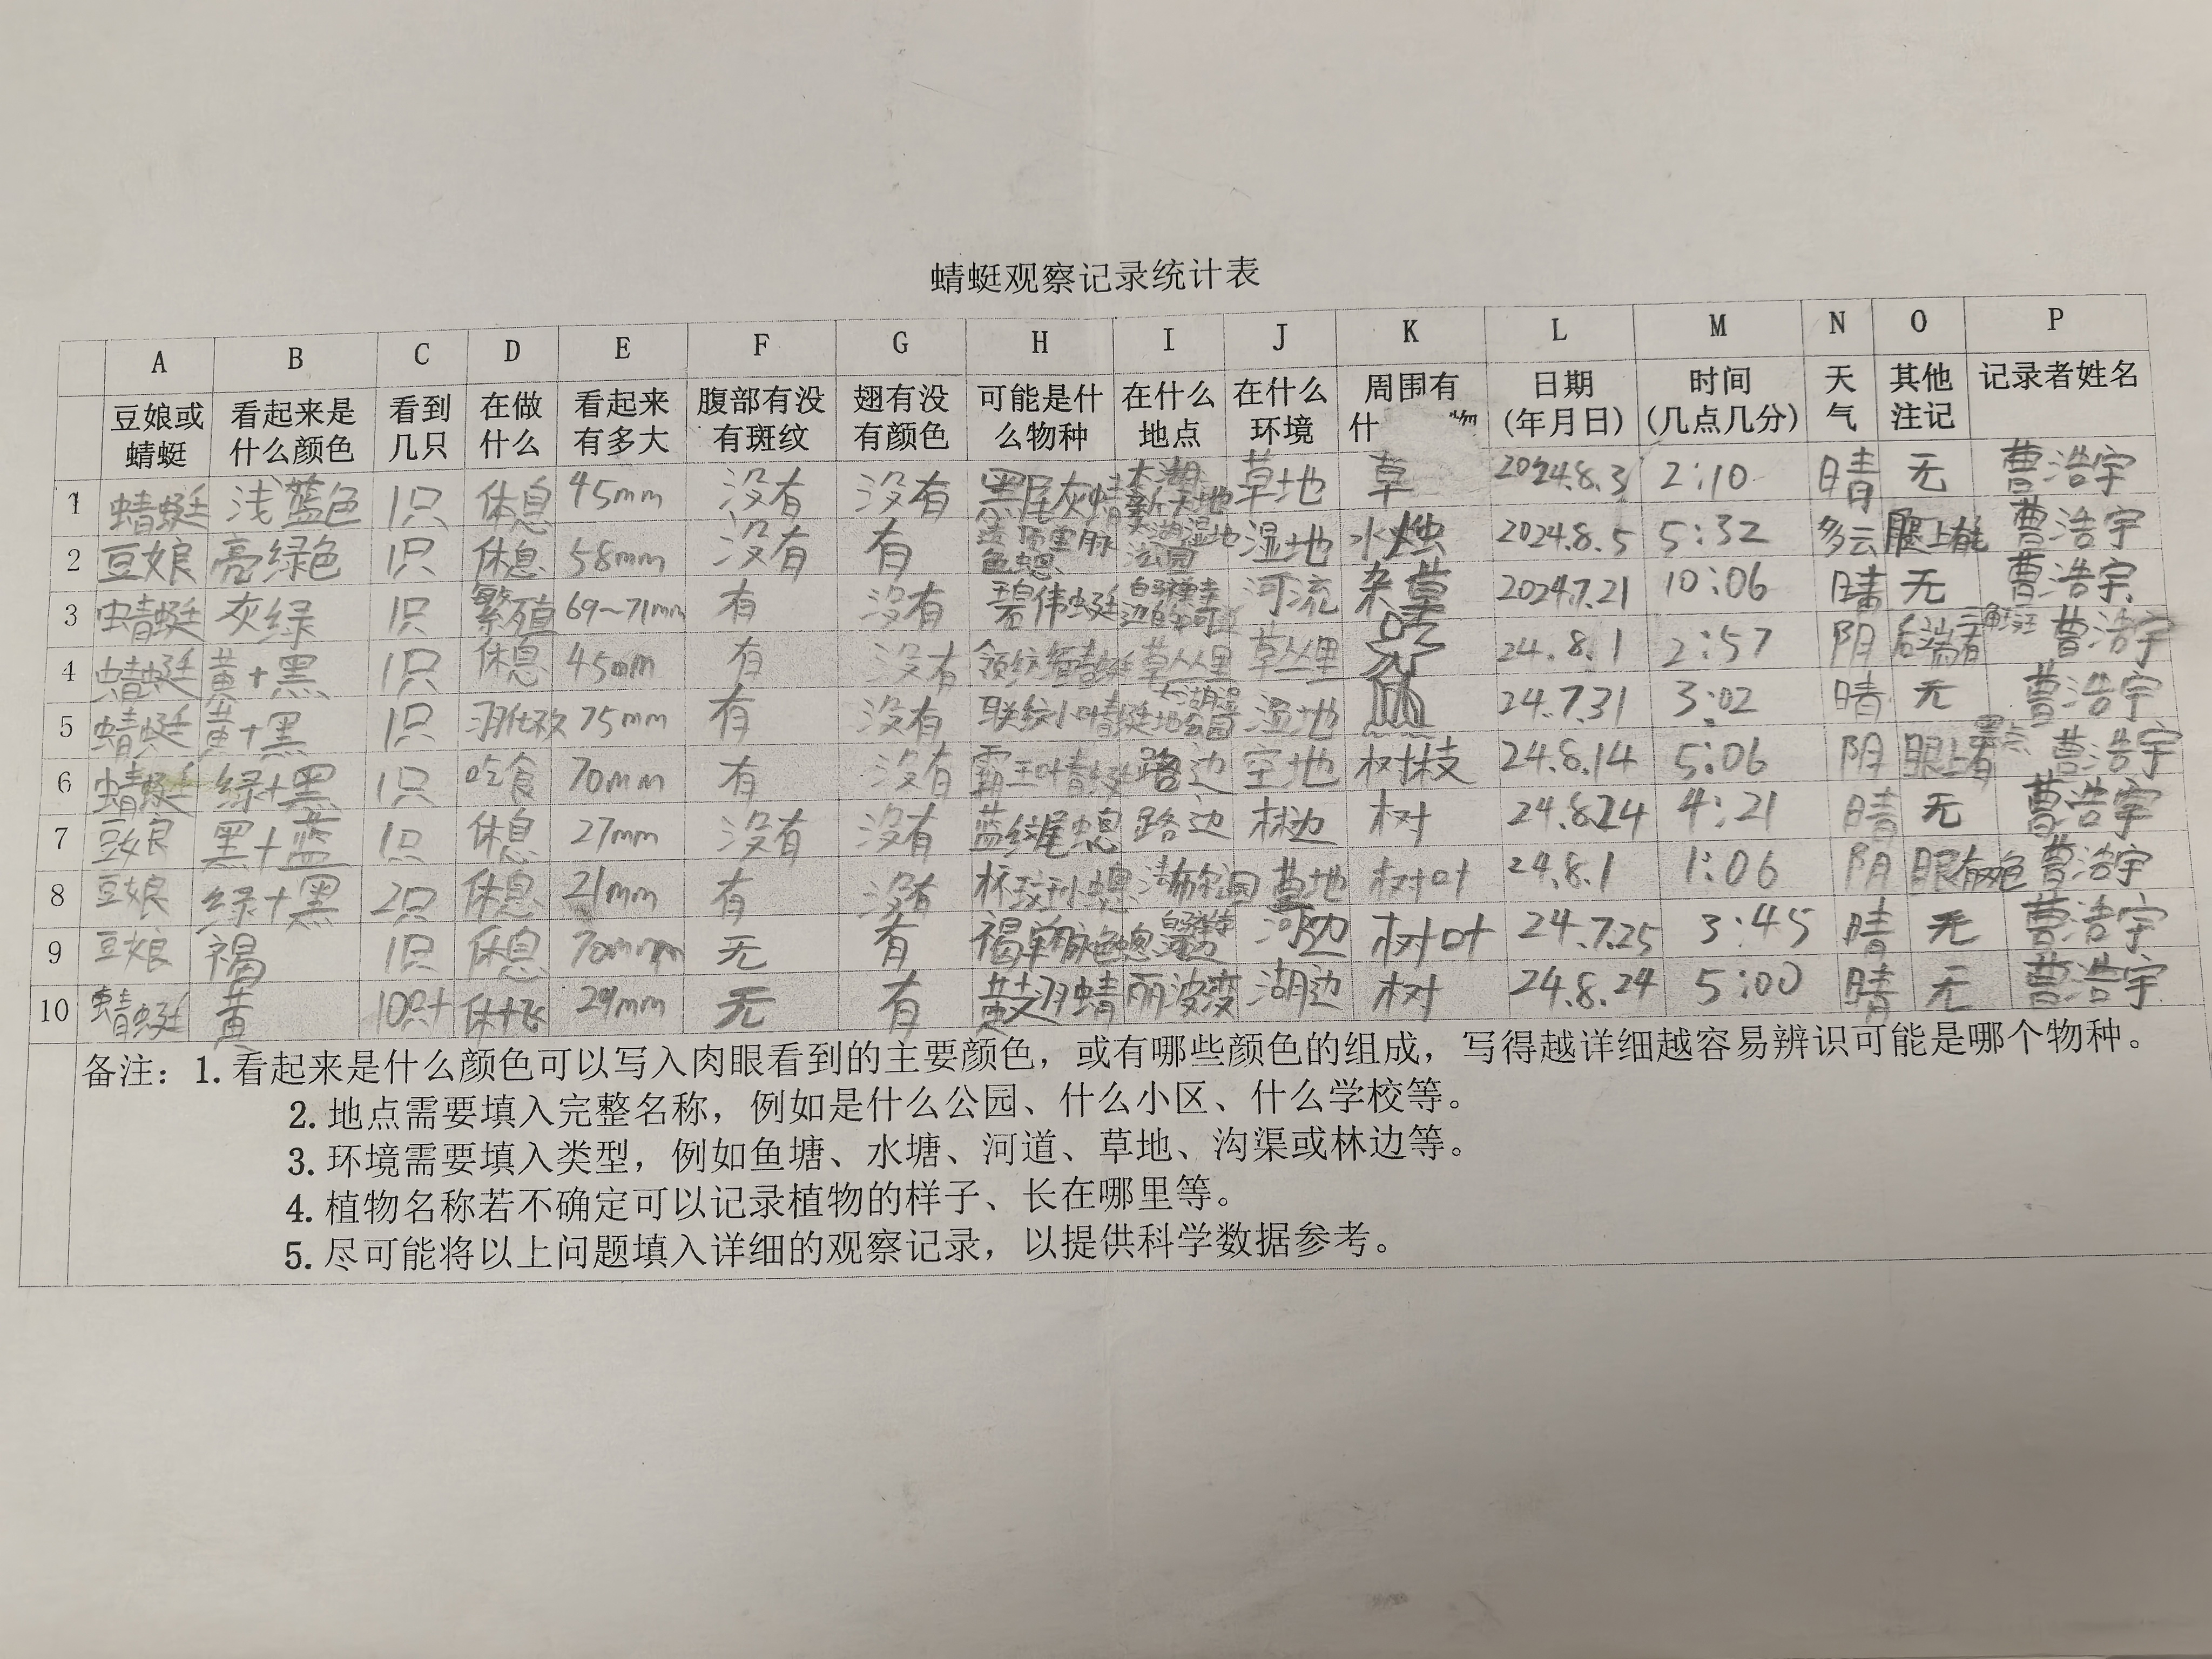 蜻蜓观察记录统计表
A B C D E F G H I J K L M N O P
豆娘或蜻蜓 看起来是什么颜色 看到几只 在做什么 看起来有多大 腹部有没有斑纹 翅有没有颜色 可能是什么物种 在什么地点 在什么环境 周围有什 物 日期(年月日) 时间(几点几分) 天气 其他注记 记录者姓名
1 蜻蜓 浅蓝色 1只 休息 45mm 没有 没有 黑尾灰蜻 草地 草 2024.8.3 2:10 晴 无 曹浩宇
2 豆娘 亮绿色 1只 休息 58mm 没有 有 湿地公园 湿地 水烛 2024.8.5 5:32 多云 腿上有 曹浩宇
3 蜻蜓 灰绿 1只 繁殖 69~71mm 有 没有 碧伟蜓 河流 杂草 2024.7.21 10:06 晴 无 曹浩宇
4 蜻蜓 黄+黑 1只 休息 45mm 有 没有 领纹缅春蜓 草丛里 草丛里 24.8.1 2:57 阴 后端有三角斑 曹浩宇
5 蜻蜓 黄+黑 1只 75mm 有 没有 联纹小叶春蜓 湿地 24.7.31 3:02 晴 无 曹浩宇
6 蜻蜓 绿+黑 1只 吃食 70mm 有 没有 霸王叶春蜓 路边 空地 树枝 24.8.14 5:06 阴 眼上有黑点 曹浩宇
7 豆娘 黑+蓝 1只 休息 27mm 没有 没有 蓝纹尾蟌 路边 林边 树 24.8.24 4:21 晴 无 曹浩宇
8 豆娘 绿+黑 2只 休息 21mm 有 没有 杯斑小蟌 草地 树叶 24.8.1 1:06 阴 眼有两色 曹浩宇
9 豆娘 褐 1只 休息 70mm 无 有 褐单脉色蟌 河边 树叶 24.7.25 3:45 晴 无 曹浩宇
10 蜻蜓 黄 10只+ 休+飞 29mm 无 有 黄翅蜻 丽波湾 湖边 树 24.8.24 5:00 晴 无 曹浩宇
备注：1.看起来是什么颜色可以写入肉眼看到的主要颜色，或有哪些颜色的组成，写得越详细越容易辨识可能是哪个物种。
2.地点需要填入完整名称，例如是什么公园、什么小区、什么学校等。
3.环境需要填入类型，例如鱼塘、水塘、河道、草地、沟渠或林边等。
4.植物名称若不确定可以记录植物的样子、长在哪里等。
5.尽可能将以上问题填入详细的观察记录，以提供科学数据参考。